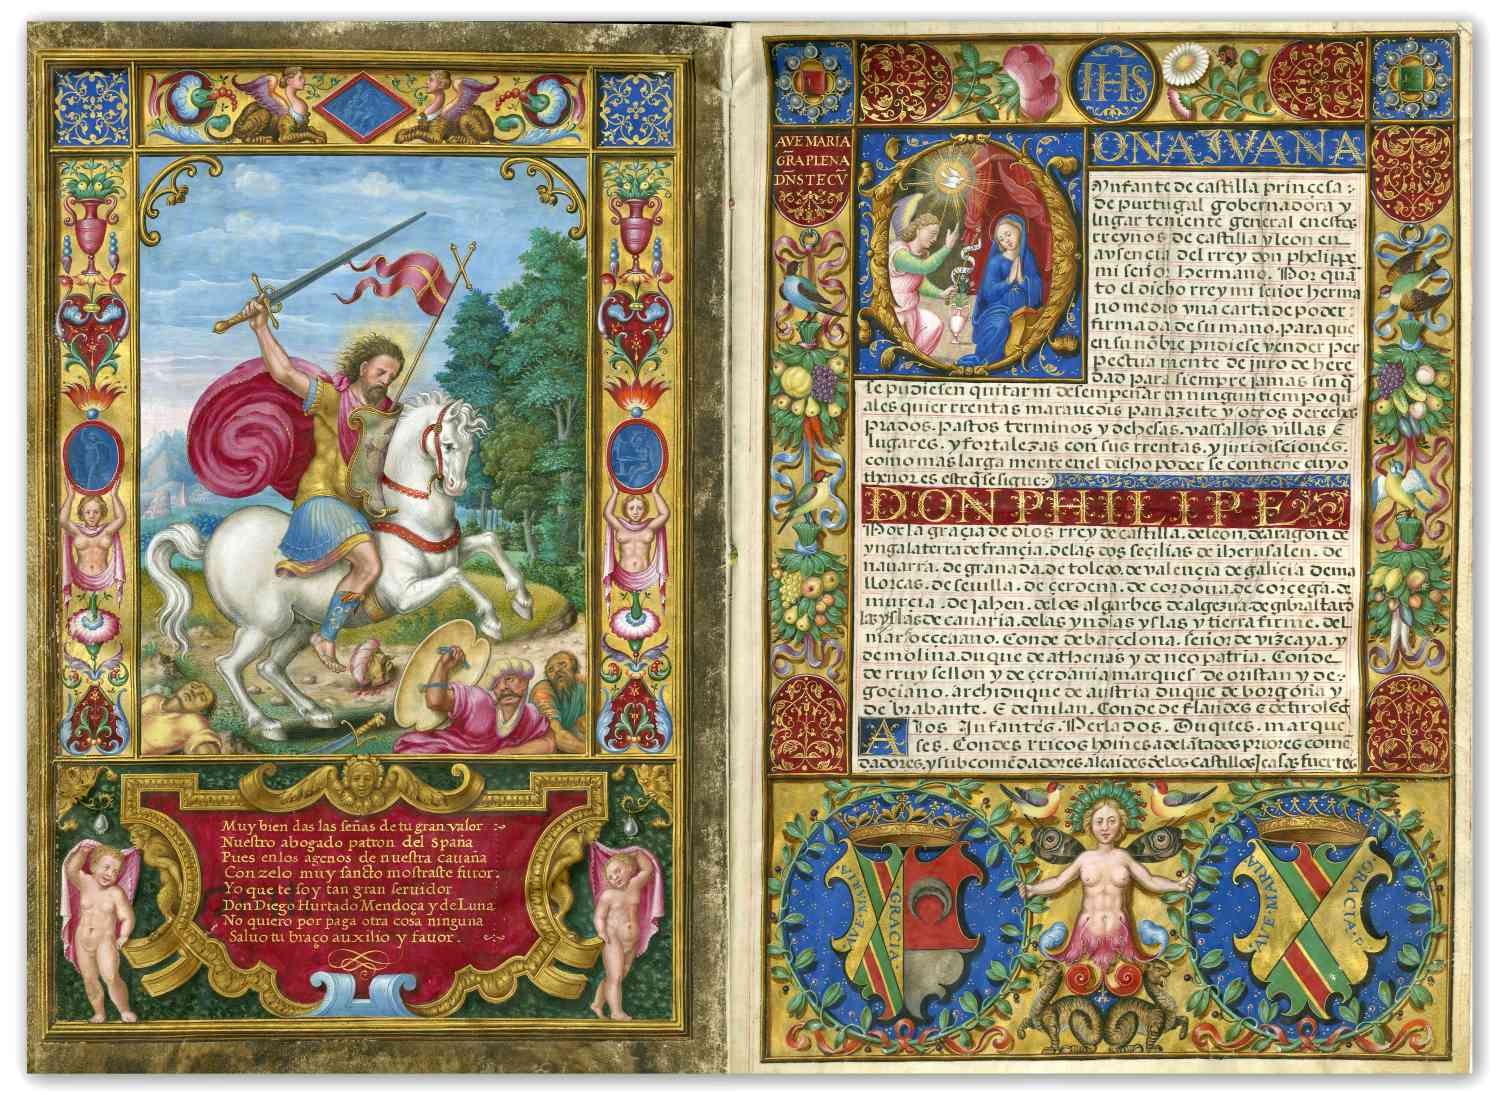 Muy bien das las señas de tu gran valor
Nuestro abogado patron del Spaña
Pues en los agenos de nuestra cauaña
Con zelo muy sancto mostraste furor.
Yo que te soy tan gran seruidor
Don Diego Hurtado Mendoça y de Luna
No quiero por paga otra cosa ninguna
Saluo tu braço auxilio y fauor.
IHS
AVE MARIA
GRA PLENA
DNS TECV
ONA JVANA
Ynfante de castilla princesa
de purtugal gobernadora y
lugar teniente general en estos
reynos de castilla y leon en
avsencia del rrey don phelippe
mi señor hermano. Por quā
to el dicho rrey mi señor herma
no me dio vna carta de poder
firmada de su mano. para que
en su nōbre pudiese vender per
pectua mente de juro de here
dad para siempre jamas sin q̄
se pudiesen quitar ni desempeñar en ningun tiempo qu
ales quier rrentas marauedis pan azeite y otros derechos
prados. pastos terminos y dehesas. vassallos villas E
lugares. y fortalezas con sus rrentas. y juridisciones.
como mas larga mente en el dicho poder se contiene cuyo
thenor es este q̄ se sigue:
DON PHILIPE
Por la gracia de dios rrey de castilla. de leon. de aragon de
yngalaterra de françia. de las dos seçilias de iherusalen. de
nauarra. de granada. de toledo. de valençia de galicia de ma
llorcas. de seuilla. de çerdeña. de cordoua. de corçega. de
murcia. de jahen. de los algarbes de algezira de gibraltar d
las yslas de canaria. de las yndias yslas y tierra firme. del
mar occeano. Conde de barcelona. señor de vizcaya. y
de molina. duque de athenas y de neopatria. Conde
de rruysellon y de çerdania marques de oristan y de
goçiano. archiduque de austria duque de borgoña y
de brabante. E de milan. Conde de flandes E de tirol Ec
A los Infantes. Perlados. Duques. marque
ses. Condes rricos homes adelātados priores come
dadores. y subcomēdadores alcaides de los castillos E casas fuertes
AVE MARIA
GRACIA.
AVE MARIA
GRACIA. P.